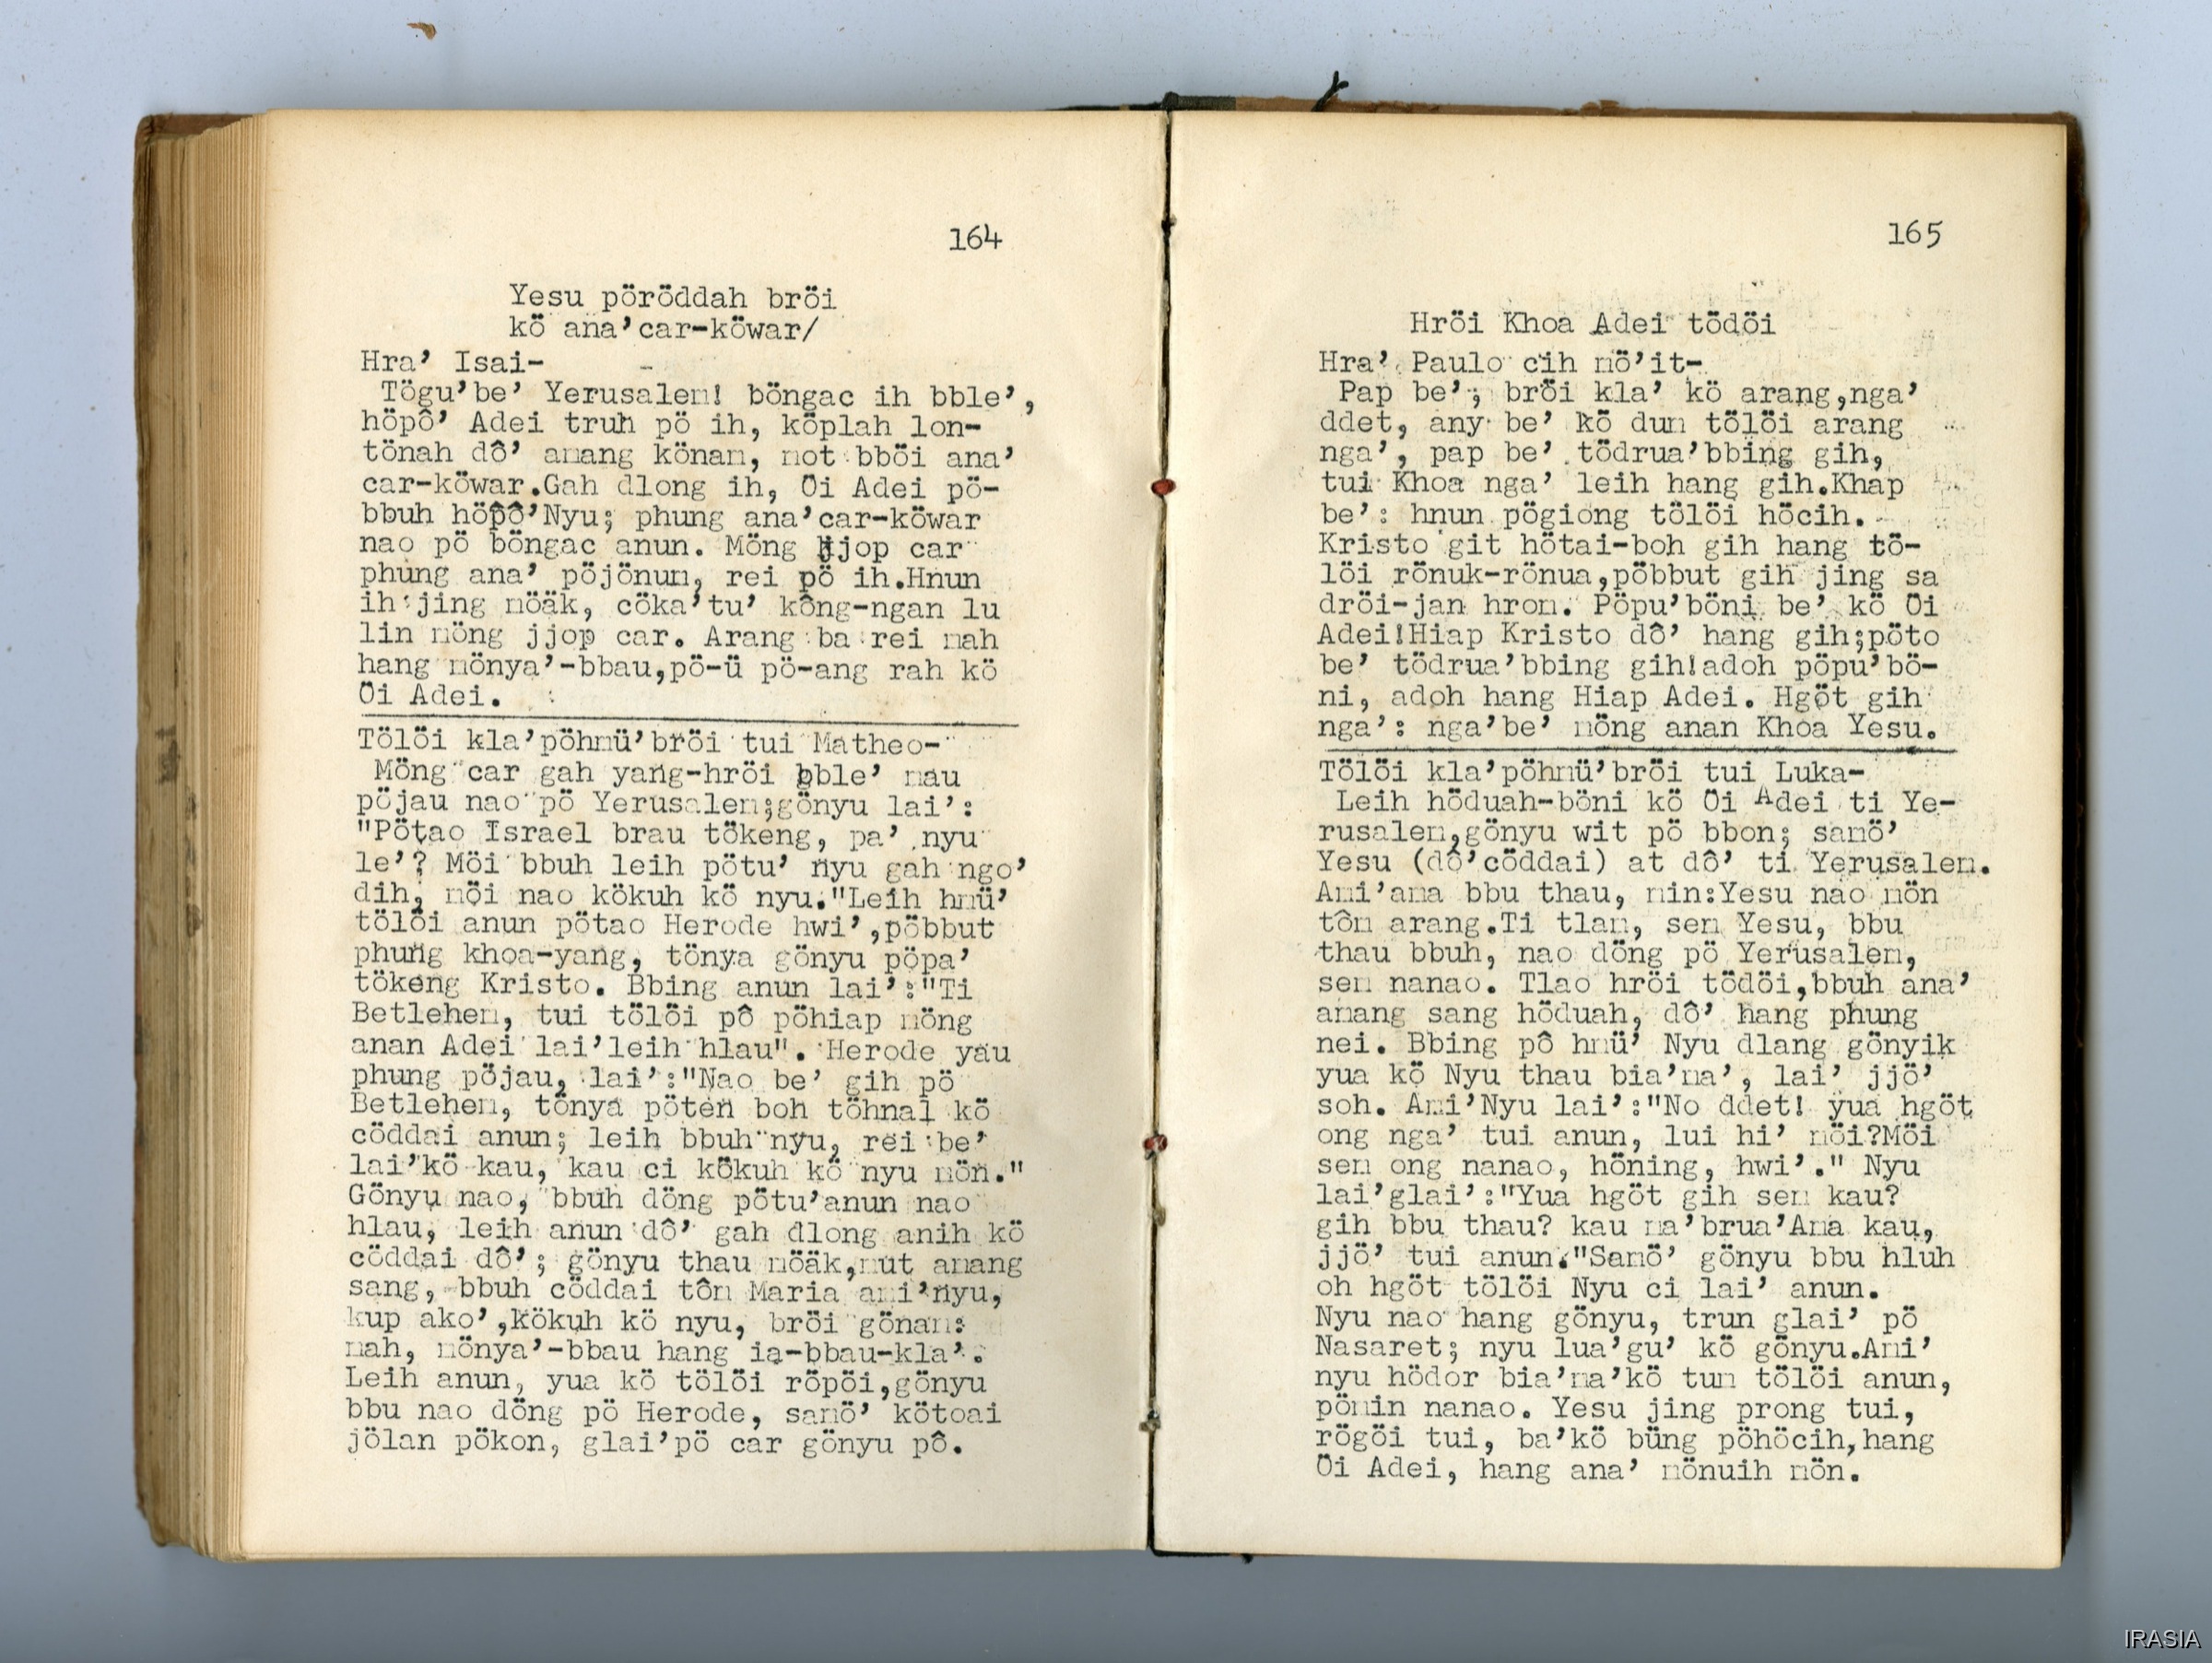 164
Yesu pöröddah bröi
kö ana’car-köwar/
Hra’ Isai-
Tögu’be’ Yerusalem! böngac ih bble’,
höpô’ Adei truh pö ih, köplah lon-
tönah dô’ amang könam, mot bböi ana’
car-köwar.Gah dlong ih, Öi Adei pö-
bbuh höpô’Nyu; phung ana’car-köwar
nao pö böngac anun. Möng jjop car
phung ana’ pöjönum, rei pö ih.Hnun
ih jing möäk, cöka’tu’ kông-ngan lu
lin möng jjop car. Arang ba rei mah
hang mönya’-bbau,pö-ü pö-ang rah kö
Öi Adei.
Tölöi kla’pöhmü’bröi tui Matheo-
Möng car gah yang-hröi bble’ mau
pöjau nao pö Yerusalem;gönyu lai’:
"Pötao Israel brau tökeng, pa’ nyu
le’? Möi bbuh leih pötu’ nyu gah ngo’
dih, möi nao kökuh kö nyu."Leih hmü’
tölöi anun pötao Herode hwi’,pöbbut
phung khoa-yang, tönya gönyu pöpa’
tökeng Kristo. Bbing anun lai’:"Ti
Betlehem, tui tölöi pô pöhiap möng
anan Adei lai’leih hlau". Herode yau
phung pöjau, lai’:"Nao be’ gih pö
Betlehem, tönya pöten boh töhnal kö
cöddai anun; leih bbuh nyu, rei be’
lai’kö kau, kau ci kökuh kö nyu mön."
Gönyu nao, bbuh döng pötu’anun nao
hlau, leih anun dô’ gah dlong anih kö
cöddai dô’; gönyu thau möäk,mut amang
sang, bbuh cöddai tôm Maria ami’nyu,
kup ako’,kökuh kö nyu, bröi gönam:
mah, mönya’-bbau hang ia-bbau-kla’.
Leih anun, yua kö tölöi röpöi,gönyu
bbu nao döng pö Herode, samö’ kötoai
jölan pökon, glai’pö car gönyu pô.
165
Hröi Khoa Adei tödöi
Hra’ Paulo cih mö’it-
Pap be’; bröi kla’ kö arang,nga’
ddet, any be’ kö dum tölöi arang
nga’, pap be’ tödrua’bbing gih,
tui Khoa nga’ leih hang gih.Khap
be’: hnun pögiong tölöi höcih.
Kristo git hötai-boh gih hang tö-
löi rönuk-rönua,pöbbut gih jing sa
dröi-jan hrom. Pöpu’böni be’ kö Öi
Adei!Hiap Kristo dô’ hang gih;pöto
be’ tödrua’bbing gih!adoh pöpu’bö-
ni, adoh hang Hiap Adei. Hgöt gih
nga’: nga’be’ möng anan Khoa Yesu.
Tölöi kla’pöhmü’bröi tui Luka-
Leih höduah-böni kö Öi Adei ti Ye-
rusalem,gönyu wit pö bbon; samö’
Yesu (dô’cöddai) at dô’ ti Yerusalem.
Ami’ama bbu thau, min:Yesu nao mön
tôm arang.Ti tlam, sem Yesu, bbu
thau bbuh, nao döng pö Yerusalem,
sem nanao. Tlao hröi tödöi,bbuh ana’
amang sang höduah, dô’ hang phung
nei. Bbing pô hmü’ Nyu dlang gönyik
yua kö Nyu thau bia’ma’, lai’ jjö’
soh. Ami’Nyu lai’:"No ddet! yua hgöt
ong nga’ tui anun, lui hi’ möi?Möi
sem ong nanao, höning, hwi’." Nyu
lai’glai’:"Yua hgöt gih sem kau?
gih bbu thau? kau ma’brua’Ama kau,
jjö’ tui anun."Samö’ gönyu bbu hluh
oh hgöt tölöi Nyu ci lai’ anun.
Nyu nao hang gönyu, trun glai’ pö
Nasaret; nyu lua’gu’ kö gönyu.Ami’
nyu hödor bia’ma’kö tum tölöi anun,
pömin nanao. Yesu jing prong tui,
rögöi tui, ba’kö büng pöhöcih,hang
Öi Adei, hang ana’ mönuih mön.
IRASIA